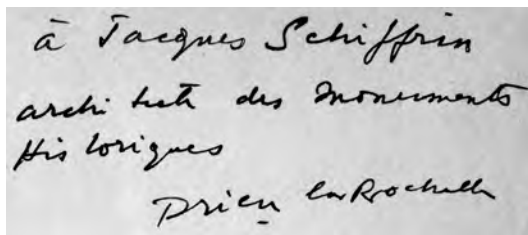 à Jacques Schiffrin
architecte des Monuments
Historiques
Drieu la Rochelle